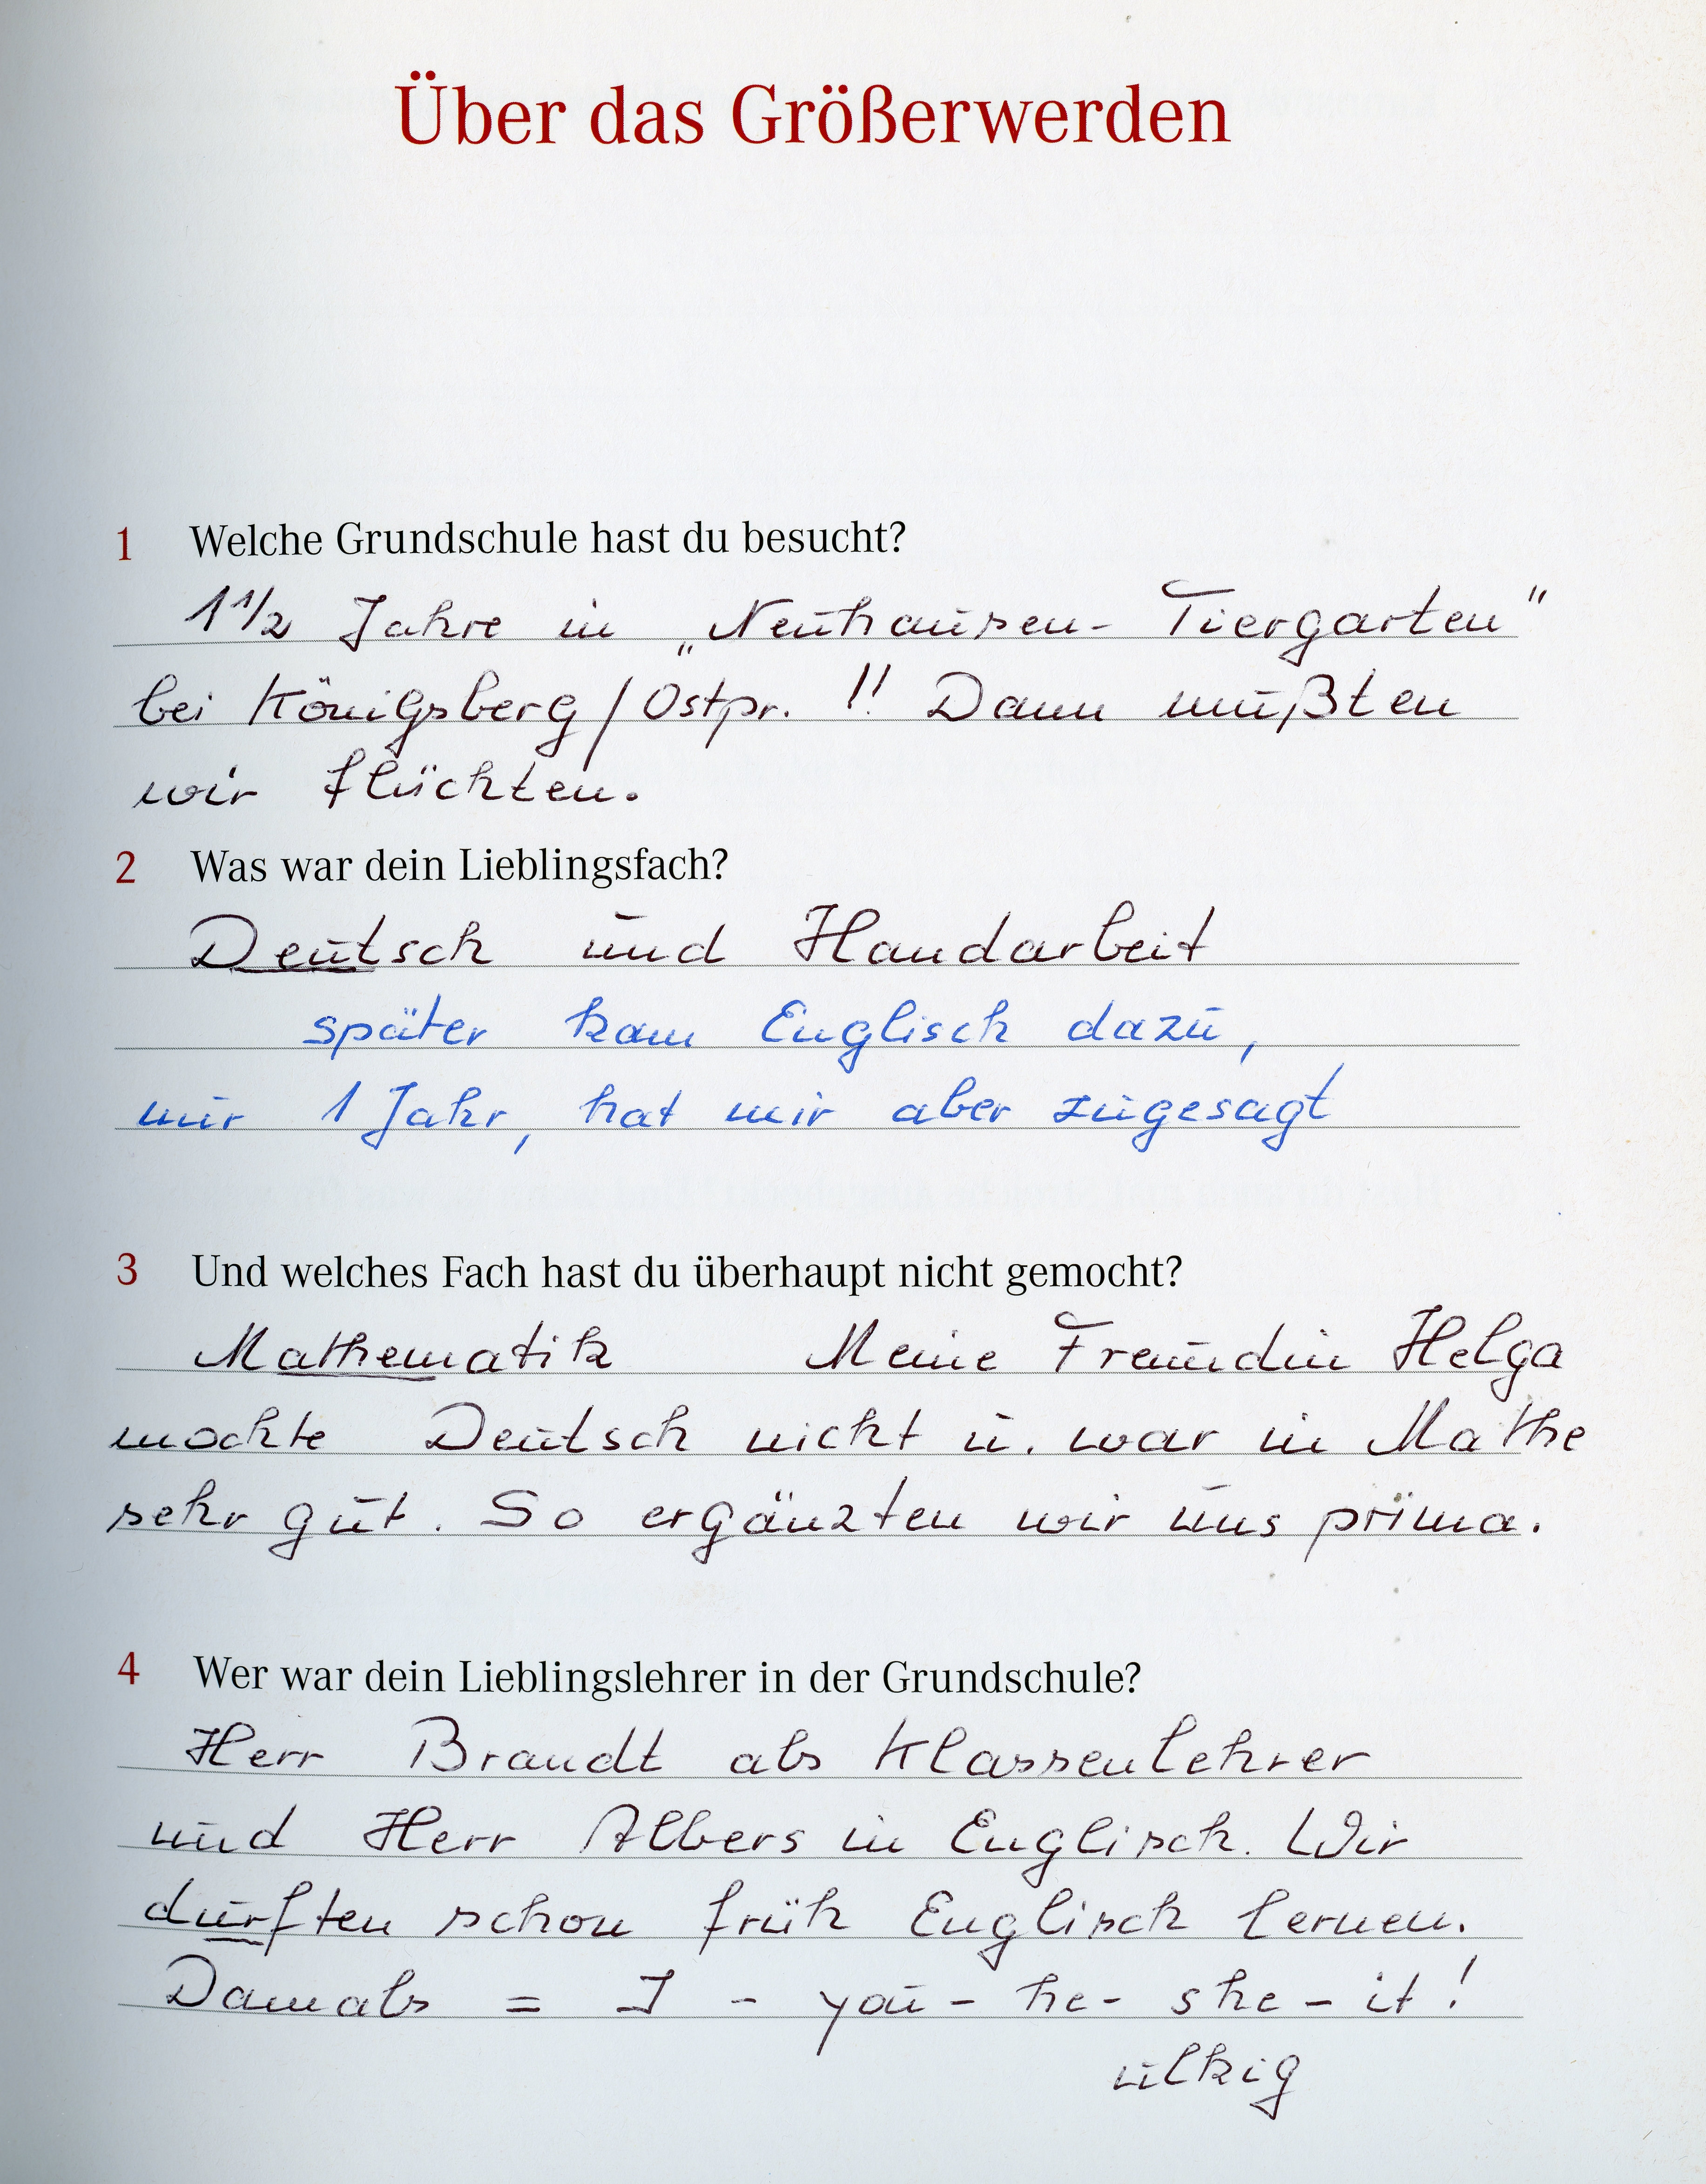 Über das Größerwerden
1 Welche Grundschule hast du besucht?
1 1/2 Jahre in „Neuhausen- Tiergarten"
bei Königsberg/Ostpr. !! Dann mußten
wir flüchten.
2 Was war dein Lieblingsfach?
Deutsch und Handarbeit
später kam Englisch dazu,
nur 1 Jahr, hat mir aber zugesagt
3 Und welches Fach hast du überhaupt nicht gemocht?
Mathematik Meine Freundin Helga
mochte Deutsch nicht u. war in Mathe
sehr gut. So ergänzten wir uns prima.
4 Wer war dein Lieblingslehrer in der Grundschule?
Herr Brandt als Klassenlehrer
und Herr Albers in Englisch. Wir
durften schon früh Englisch lernen.
Damals = I - you - he - she - it!
ulkig